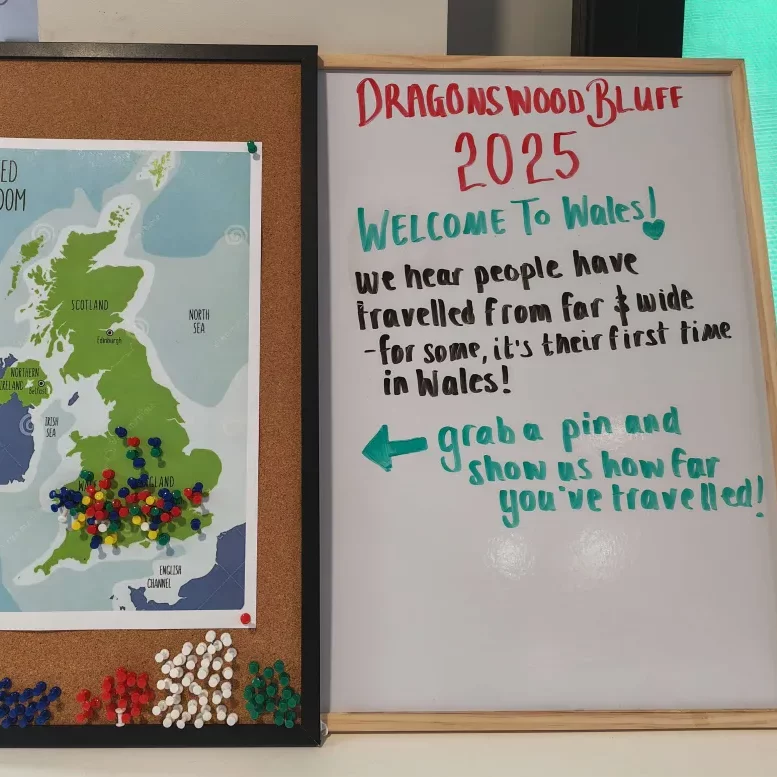 ED
OOM
SCOTLAND
Edinburgh
NORTH
SEA
NORTHERN
IRELAND
Belfast
IRISH
SEA
ENGLISH
CHANNEL
DRAGONSWOOD BLUFF
2025
WELCOME To Wales!
we hear people have
travelled from far & wide
- for some, it's their first time
in Wales!
grab a pin and
show us how far
you've travelled!